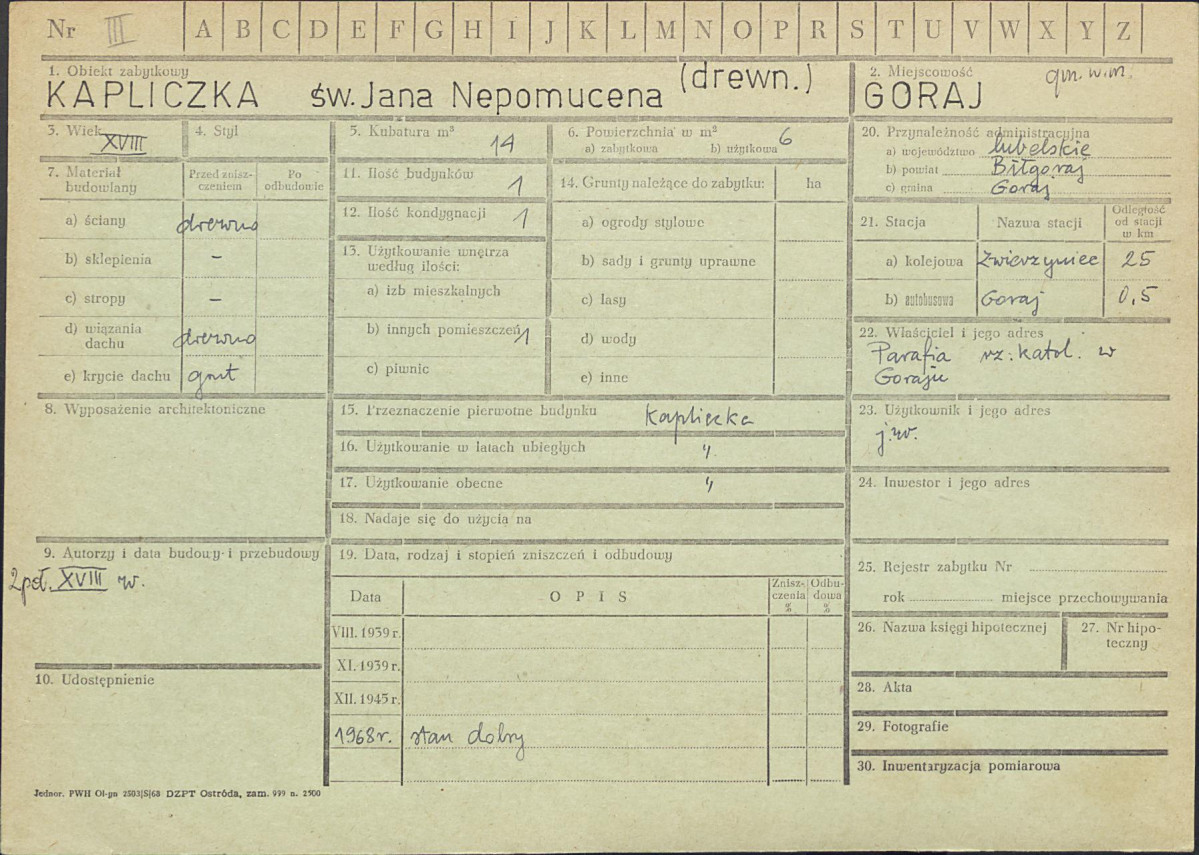 Nr III A B C D E F G H I J K L M N O P R S T U V W X Y Z
1. Obiekt zabytkowy
KAPLICZKA św. Jana Nepomucena (drewn.)
2. Miejscowość gm. w.m.
GORAJ
3. Wiek XVIII
4. Styl
5. Kubatura m³ 14
6. Powierzchnia w m² 6
a) zabytkowa b) użytkowa
7. Materiał budowlany
Przed znisz-
czeniem
Po
odbudowie
a) ściany drewno
b) sklepienia –
c) stropy –
d) wiązania
dachu drewno
e) krycie dachu gont
11. Ilość budynków 1
12. Ilość kondygnacji 1
13. Użytkowanie wnętrza
według ilości:
a) izb mieszkalnych
b) innych pomieszczeń 1
c) piwnic
14. Grunty należące do zabytku: ha
a) ogrody stylowe
b) sady i grunty uprawne
c) lasy
d) wody
e) inne
20. Przynależność administracyjna
a) województwo lubelskie
b) powiat Biłgoraj
c) gmina Goraj
21. Stacja Nazwa stacji
Odległość
od stacji
w km
a) kolejowa Zwierzyniec 25
b) autobusowa Goraj 0,5
22. Właściciel i jego adres
Parafia rz. katol. w
Goraju
8. Wyposażenie architektoniczne
15. Przeznaczenie pierwotne budynku kapliczka
16. Użytkowanie w latach ubiegłych "
17. Użytkowanie obecne "
18. Nadaje się do użycia na
23. Użytkownik i jego adres
j.w.
24. Inwestor i jego adres
9. Autorzy i data budowy i przebudowy
2 poł. XVIII w.
10. Udostępnienie
19. Data, rodzaj i stopień zniszczeń i odbudowy
Data OPIS
Znisz-
czenia
%
Odbu-
dowa
%
VIII. 1939 r.
XI. 1939 r.
XII. 1945 r.
1968 r. stan dobry
25. Rejestr zabytku Nr
rok miejsce przechowywania
26. Nazwa księgi hipotecznej
27. Nr hipo-
teczny
28. Akta
29. Fotografie
30. Inwentaryzacja pomiarowa
Jednor. PWH Ol-yn 2503|S|68 DZPT Ostróda, zam. 999 n. 2500